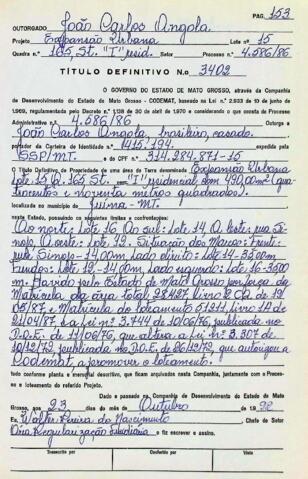 PAG. 153
OUTORGADO João Carlos Angola
Projeto Expansão Urbana Lote nº 15
Quadra nº 165, St. "I" resid. Setor Processo nº 4.586/86
TÍTULO DEFINITIVO N.o 3402
O GOVERNO DO ESTADO DE MATO GROSSO, através da Companhia
de Desenvolvimento do Estado de Mato Grosso - CODEMAT, baseado na Lei n.º 2.933 de 10 de junho de
1969, regulamentada pelo Decreto n.º 1.138 de 30 de abril de 1970 e considerando o que consta de Processo
Administrativo n.º 4.586/86 Outorga a
João Carlos Angola, brasileiro, casado.
portador da Carteira de Identidade n.º 1415.194. expedida pela
SSP/MT. e do CPF nº 314.284.871-15
O Título Definitivo de Propriedade de uma área de Terra denominada Expansão Urbana
Lote 15 Q. 165 St. "I" residencial com 490,00m² (qua-
trocentos e noventa metros quadrados).
localizada no município de Juína - MT.
neste Estado, possuindo os seguintes limites e confrontações:
Ao norte: Lote 16. Ao sul: Lote 14. A leste: rua
A oeste: Lote 12. Situação dos Marcos: Frente:
rua 14.00m. Lado direito: Lote 14 - 35.00m
Fundos: Lote 12 - 14.00m. Lado esquerdo: Lote 16 - 35.00
m. Havido pelo Estado de Mato Grosso por força da
Matrícula da área total 28427 livro 2
/87 e Matrícula do loteamento 51211, livro
24/04/87, e a Lei nº 3.744 de 10/06/76, publicada no
D.O.E. de 11/06/76, que altera a Lei nº 3.307 de
, publicada no D.O.E. de , que autorizou a
Codemat, a promover o loteamento.
tudo conforme planta e memorial descritivo, que ficam arquivados nesta Companhia, juntamente com o Proces-
so e loteamento do referido Projeto.
Dado e passado na Companhia de Desenvolvimento do Estado de Mato
Grosso, aos 23 dias do mês de Outubro de 19
Eu, Walter Pereira do Nascimento Chefe de Setor
Regularização Fundiária o fiz escrever e assino.
Transcrito por Conferido por Visto